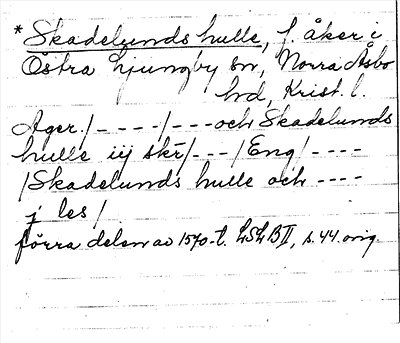 *Skadelunds hulle, f. åker i
Östra Ljungby sn, Norra Åsbo
hd, Krist. l.
Ager./----/---och Skadelunds
hulle iij skr/---/Eng/----
/Skadelunds hulle och ----
j les/
förra delen av 1570-t. LSLB II, s. 44. orig.